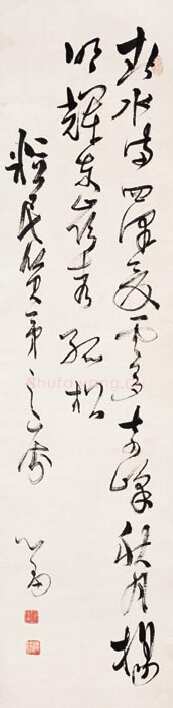 春水满四泽夏云多奇峰秋月扬
明辉冬岭秀孤松
稚民贤弟之属 心畬